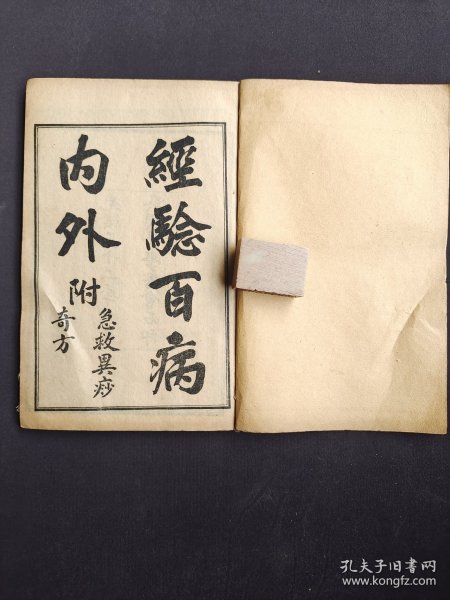 經驗百病
內外
附
急救異痧
奇方
孔夫子旧书网
www.kongfz.com